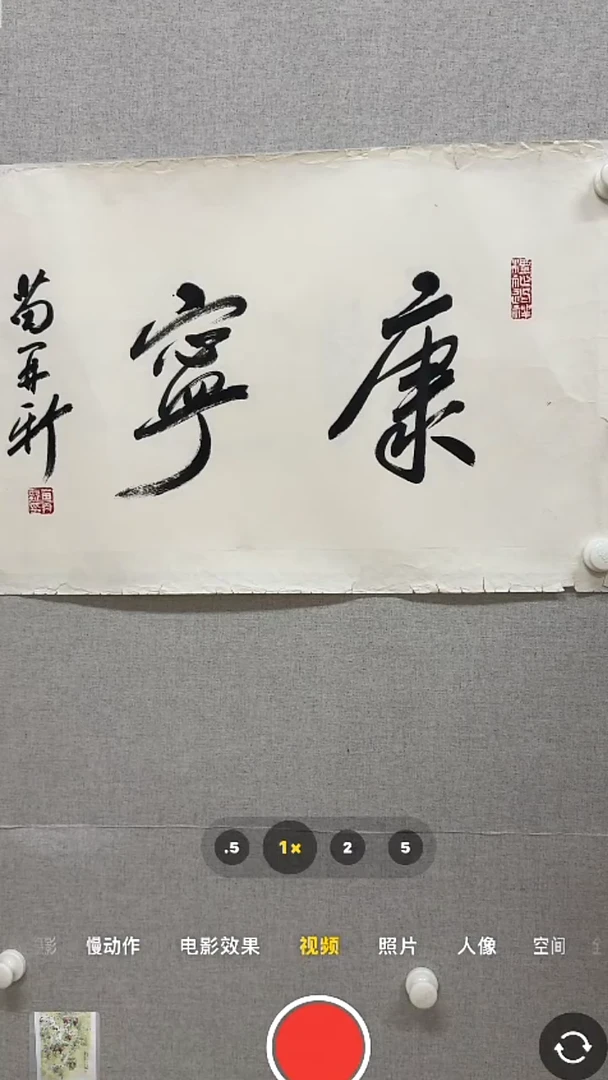 康寧
苟开新
.5 1× 2 5
慢动作 电影效果 视频 照片 人像 空间